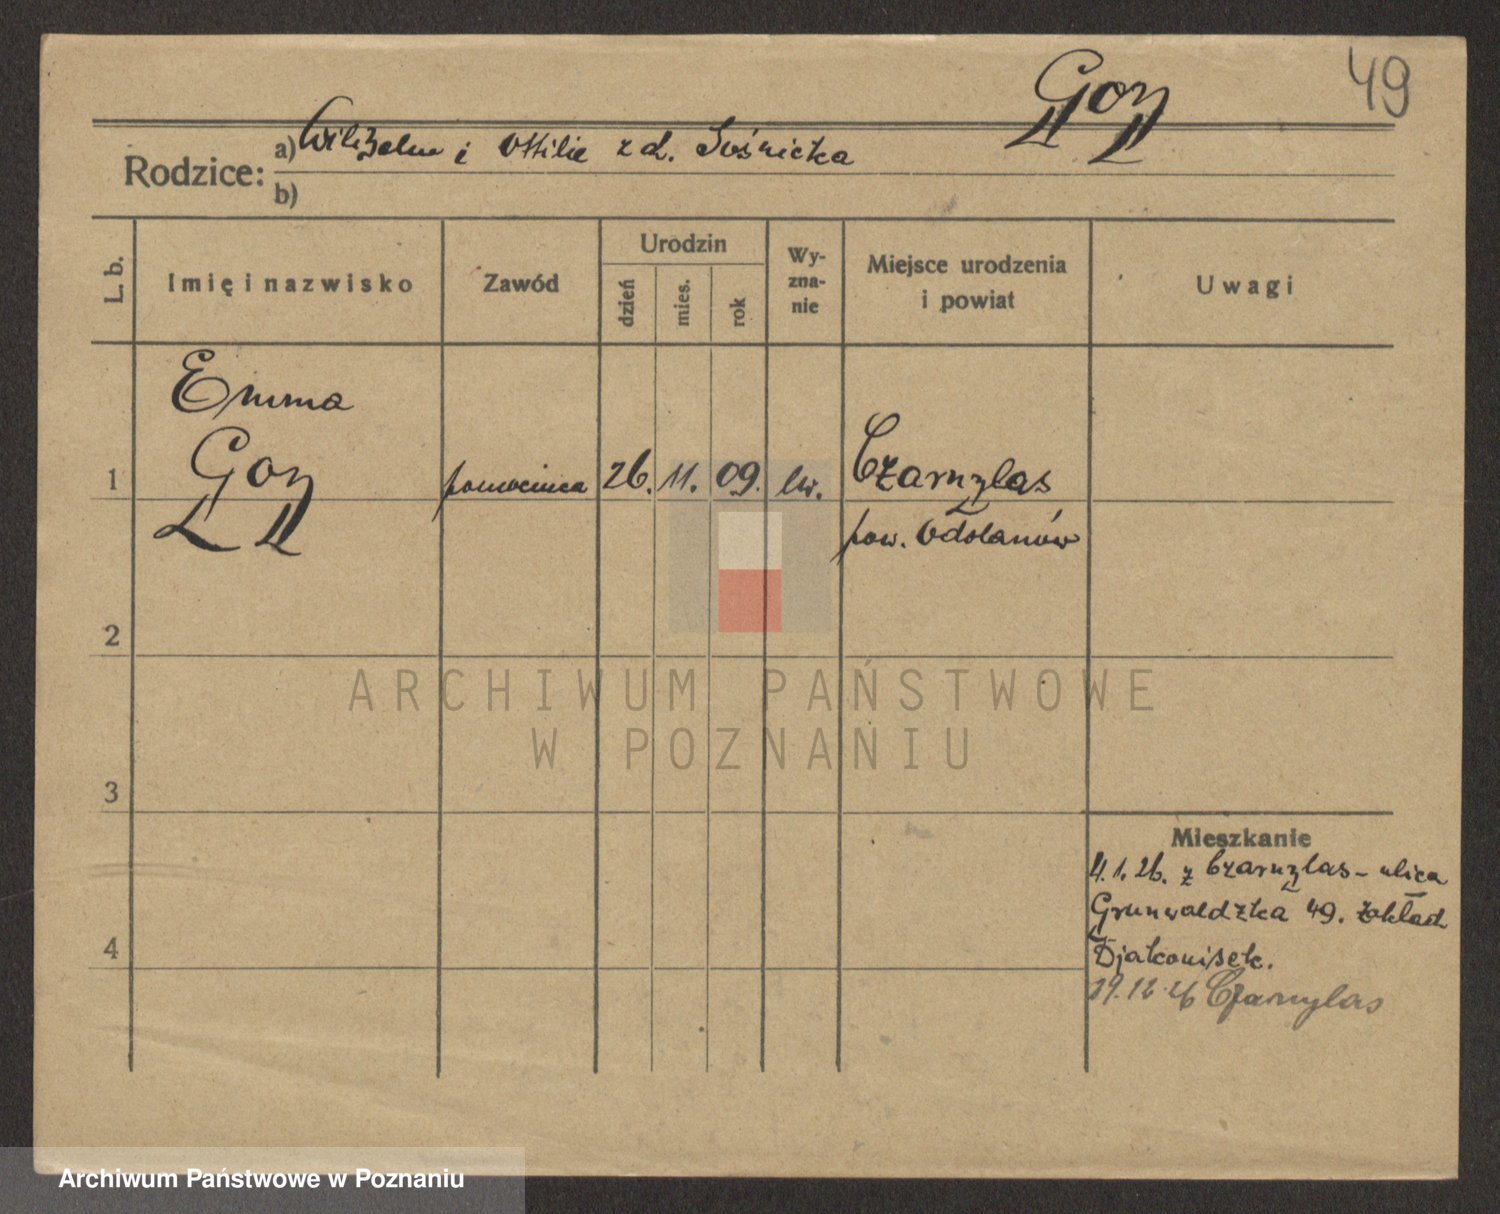 49
Goy
Rodzice: a) Wilhelm i Ottilie z d. Sośnicka
b)
L. b.
Imię i nazwisko
Zawód
Urodzin
dzień
mies.
rok
Wy-
zna-
nie
Miejsce urodzenia
i powiat
Uwagi
Emma
1 Goy pomocnica 26. 11. 09. ew. Czarnylas
pow. Odolanów
2
ARCHIWUM PAŃSTWOWE
W POZNANIU
3
Mieszkanie
4.1.26. z Czarnylas - ulica
Grunwaldzka 49. zakład
4
Djakonisek.
29.12.26 Czarnylas
Archiwum Państwowe w Poznaniu